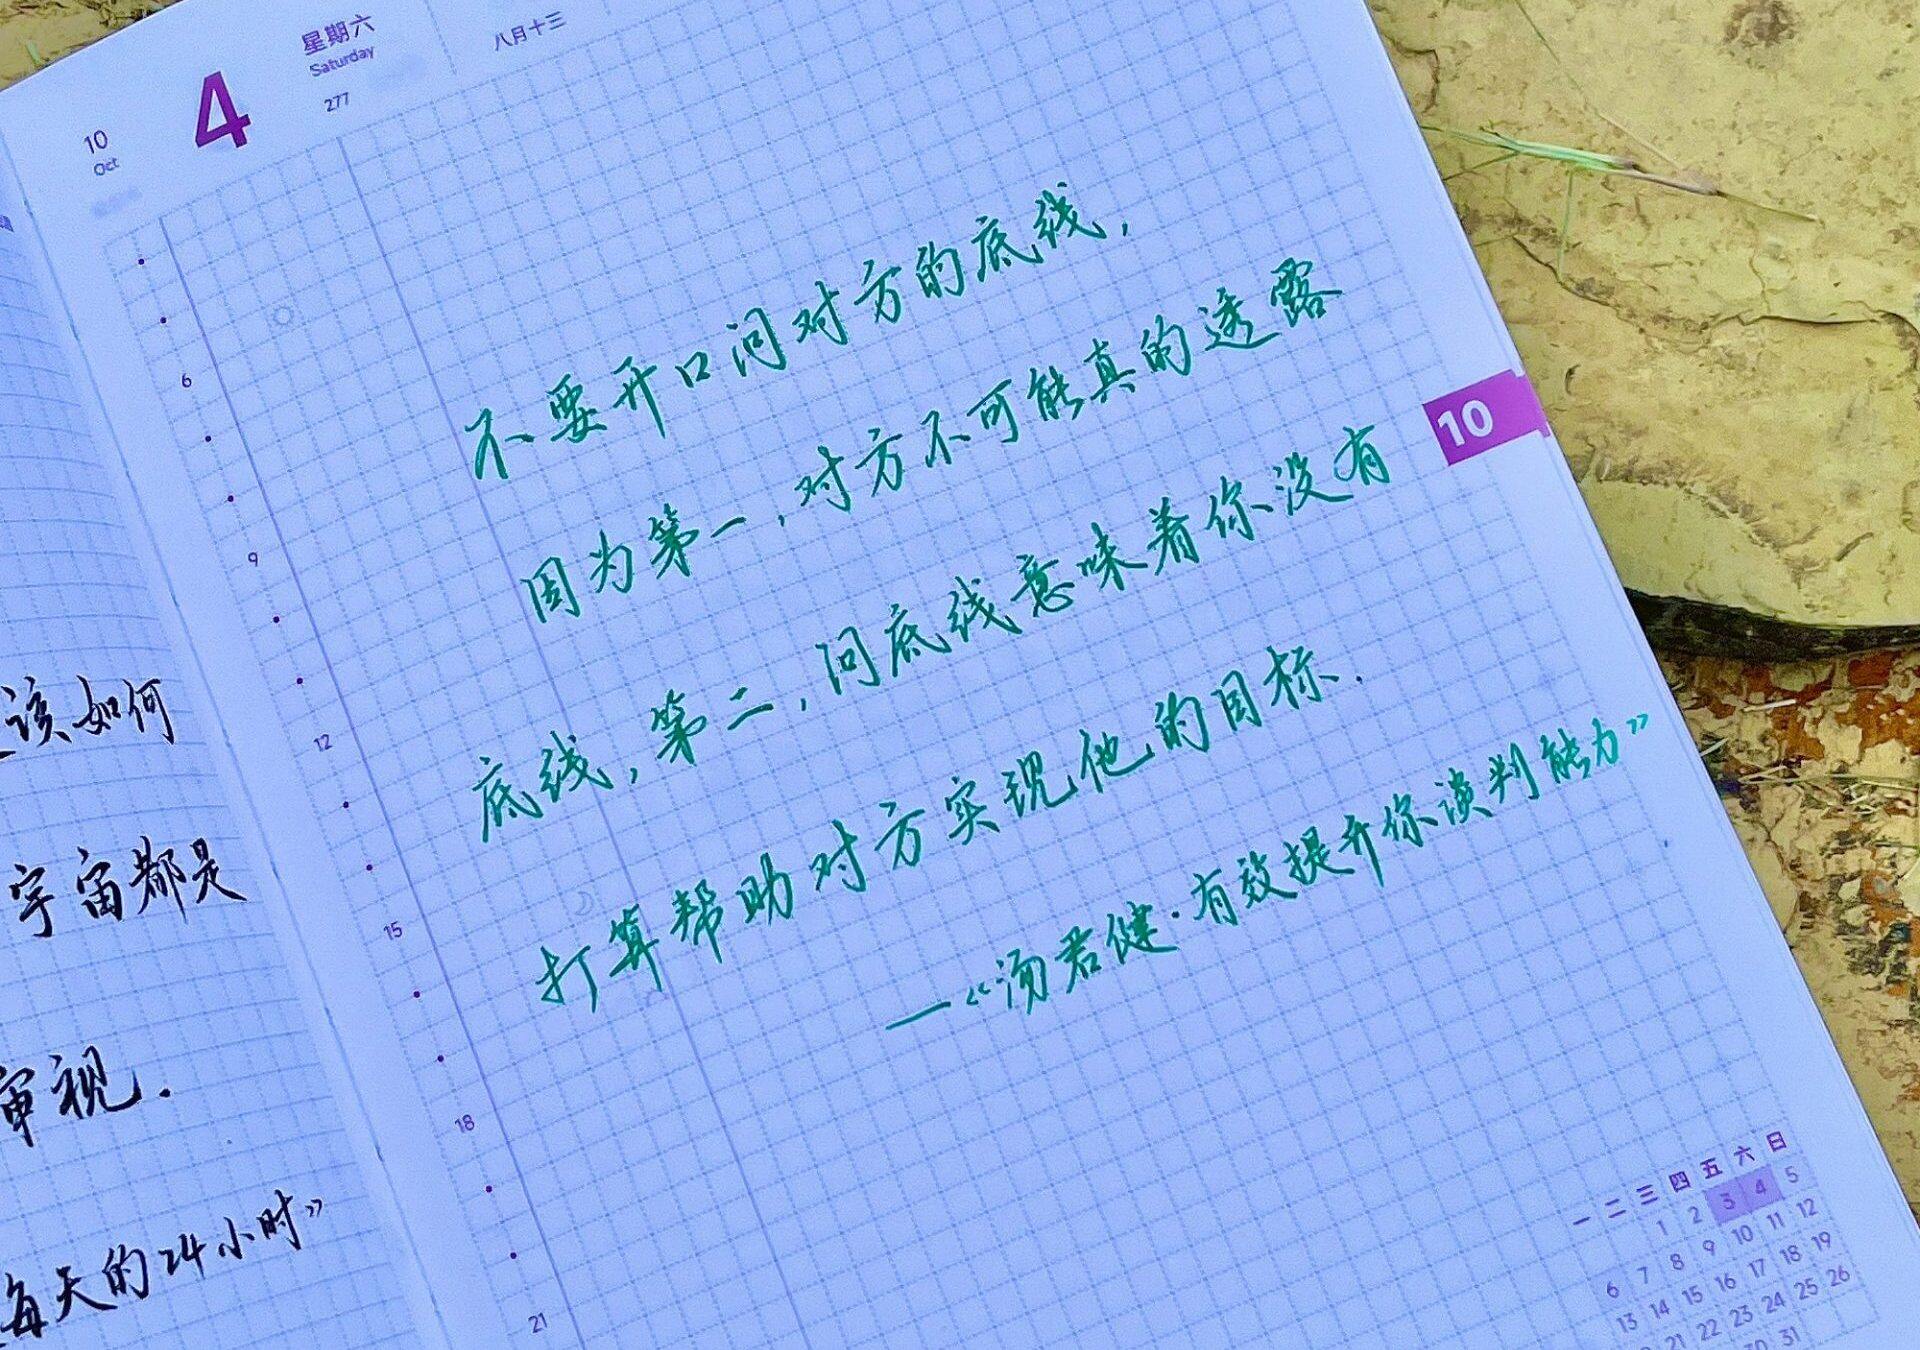 该如何
宇宙都是
审视.
每天的24小时》
10
Oct
4
星期六
Saturday
277
八月十三
6
9
12
15
18
21
不要开口问对方的底线,
因为第一,对方不可能真的透露
底线,第二,问底线意味着你没有
打算帮助对方实现他的目标.
—《汤君健·有效提升你谈判能力》
10
一 二 三 四 五 六 日
1 2 3 4 5
6 7 8 9 10 11 12
13 14 15 16 17 18 19
21 22 23 24 25 26
30 31